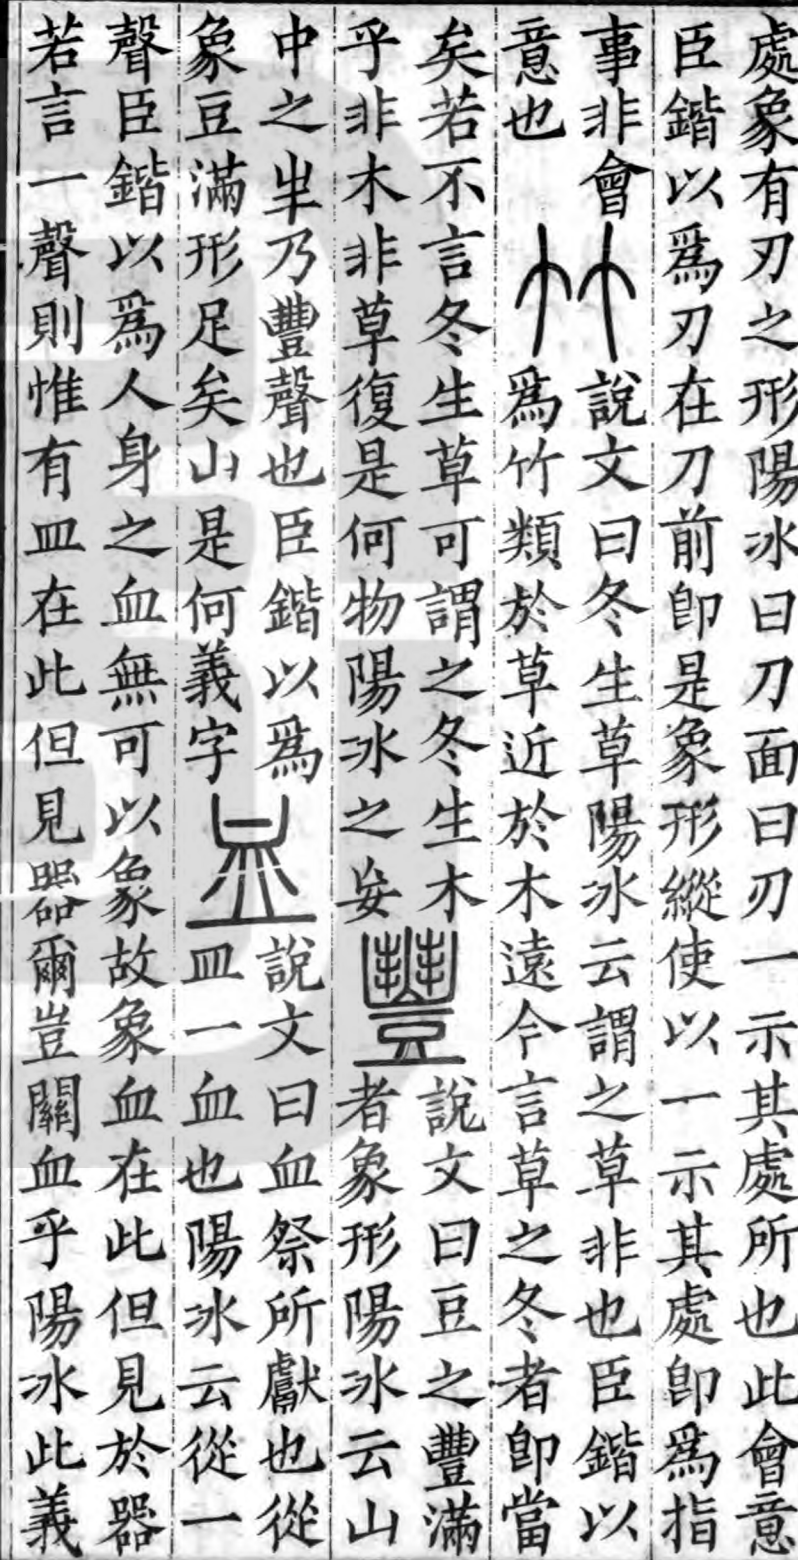 處象有刃之形陽冰曰刀面曰刃一示其處所也此會意
臣鍇以爲刃在刀前卽是象形縱使以一示其處卽爲指
事非會
意也
竹
說文曰冬生草陽冰云謂之草非也臣鍇以
爲竹類於草近於木遠今言草之冬者卽當
矣若不言冬生草可謂之冬生木
乎非木非草復是何物陽冰之妄
豐
說文曰豆之豐滿
者象形陽冰云山
中之半乃豐聲也臣鍇以爲
象豆滿形足矣山是何義字
血
說文曰血祭所獻也從
皿一血也陽冰云從一
聲臣鍇以爲人身之血無可以象故象血在此但見於器
若言一聲則惟有皿在此但見器爾豈關血乎陽冰此義